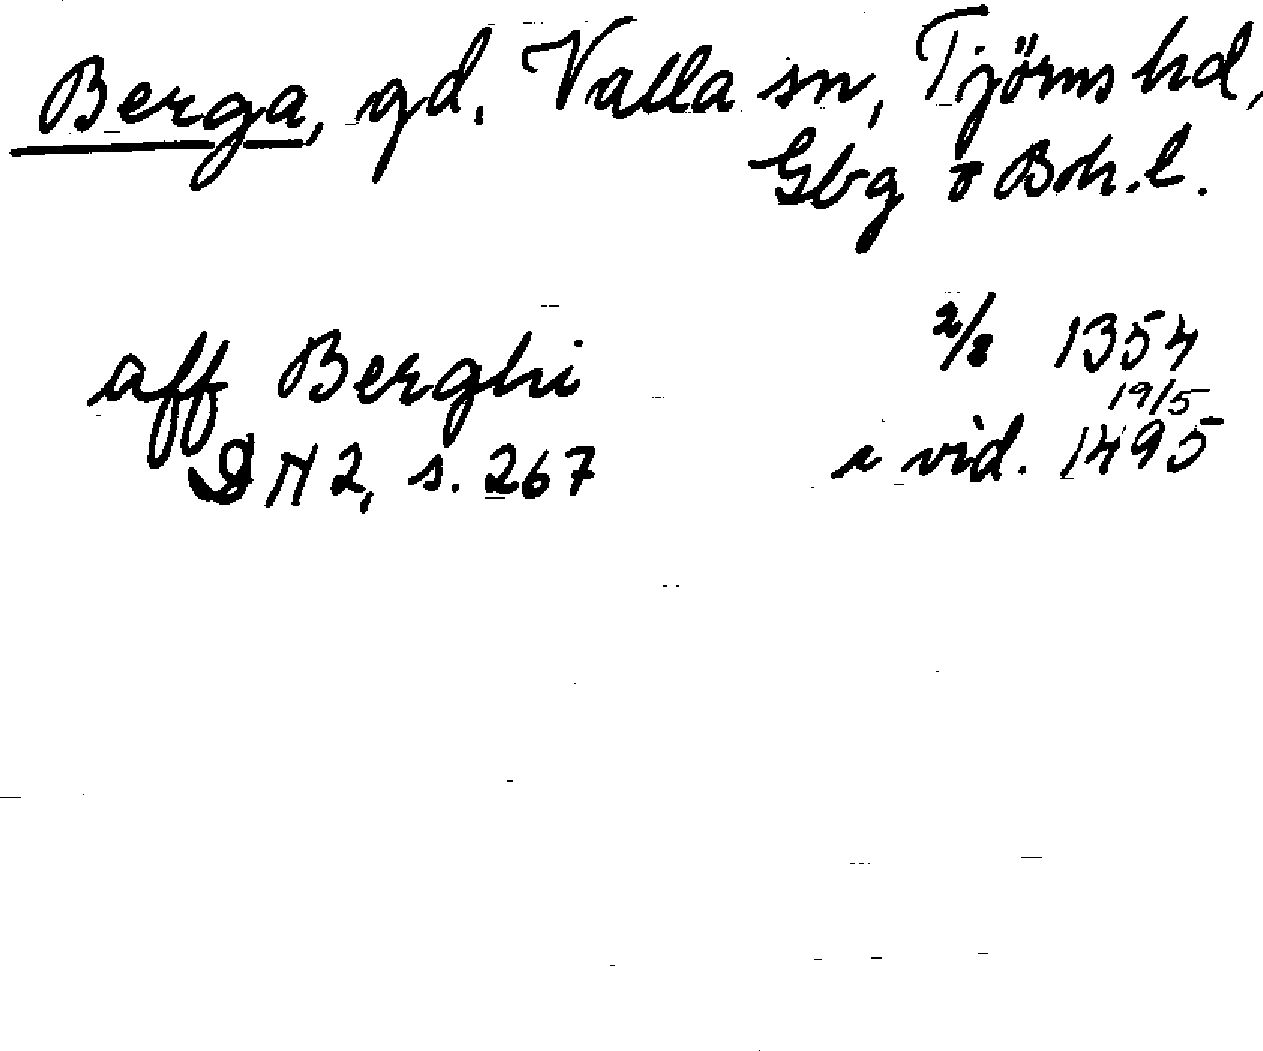 Berga, gd, Valla sn, Tjörns hd,
Gbg o Boh. l.
aff Berghi 2/2 1354
19/5
DN 2, s. 267 i vid. 1495